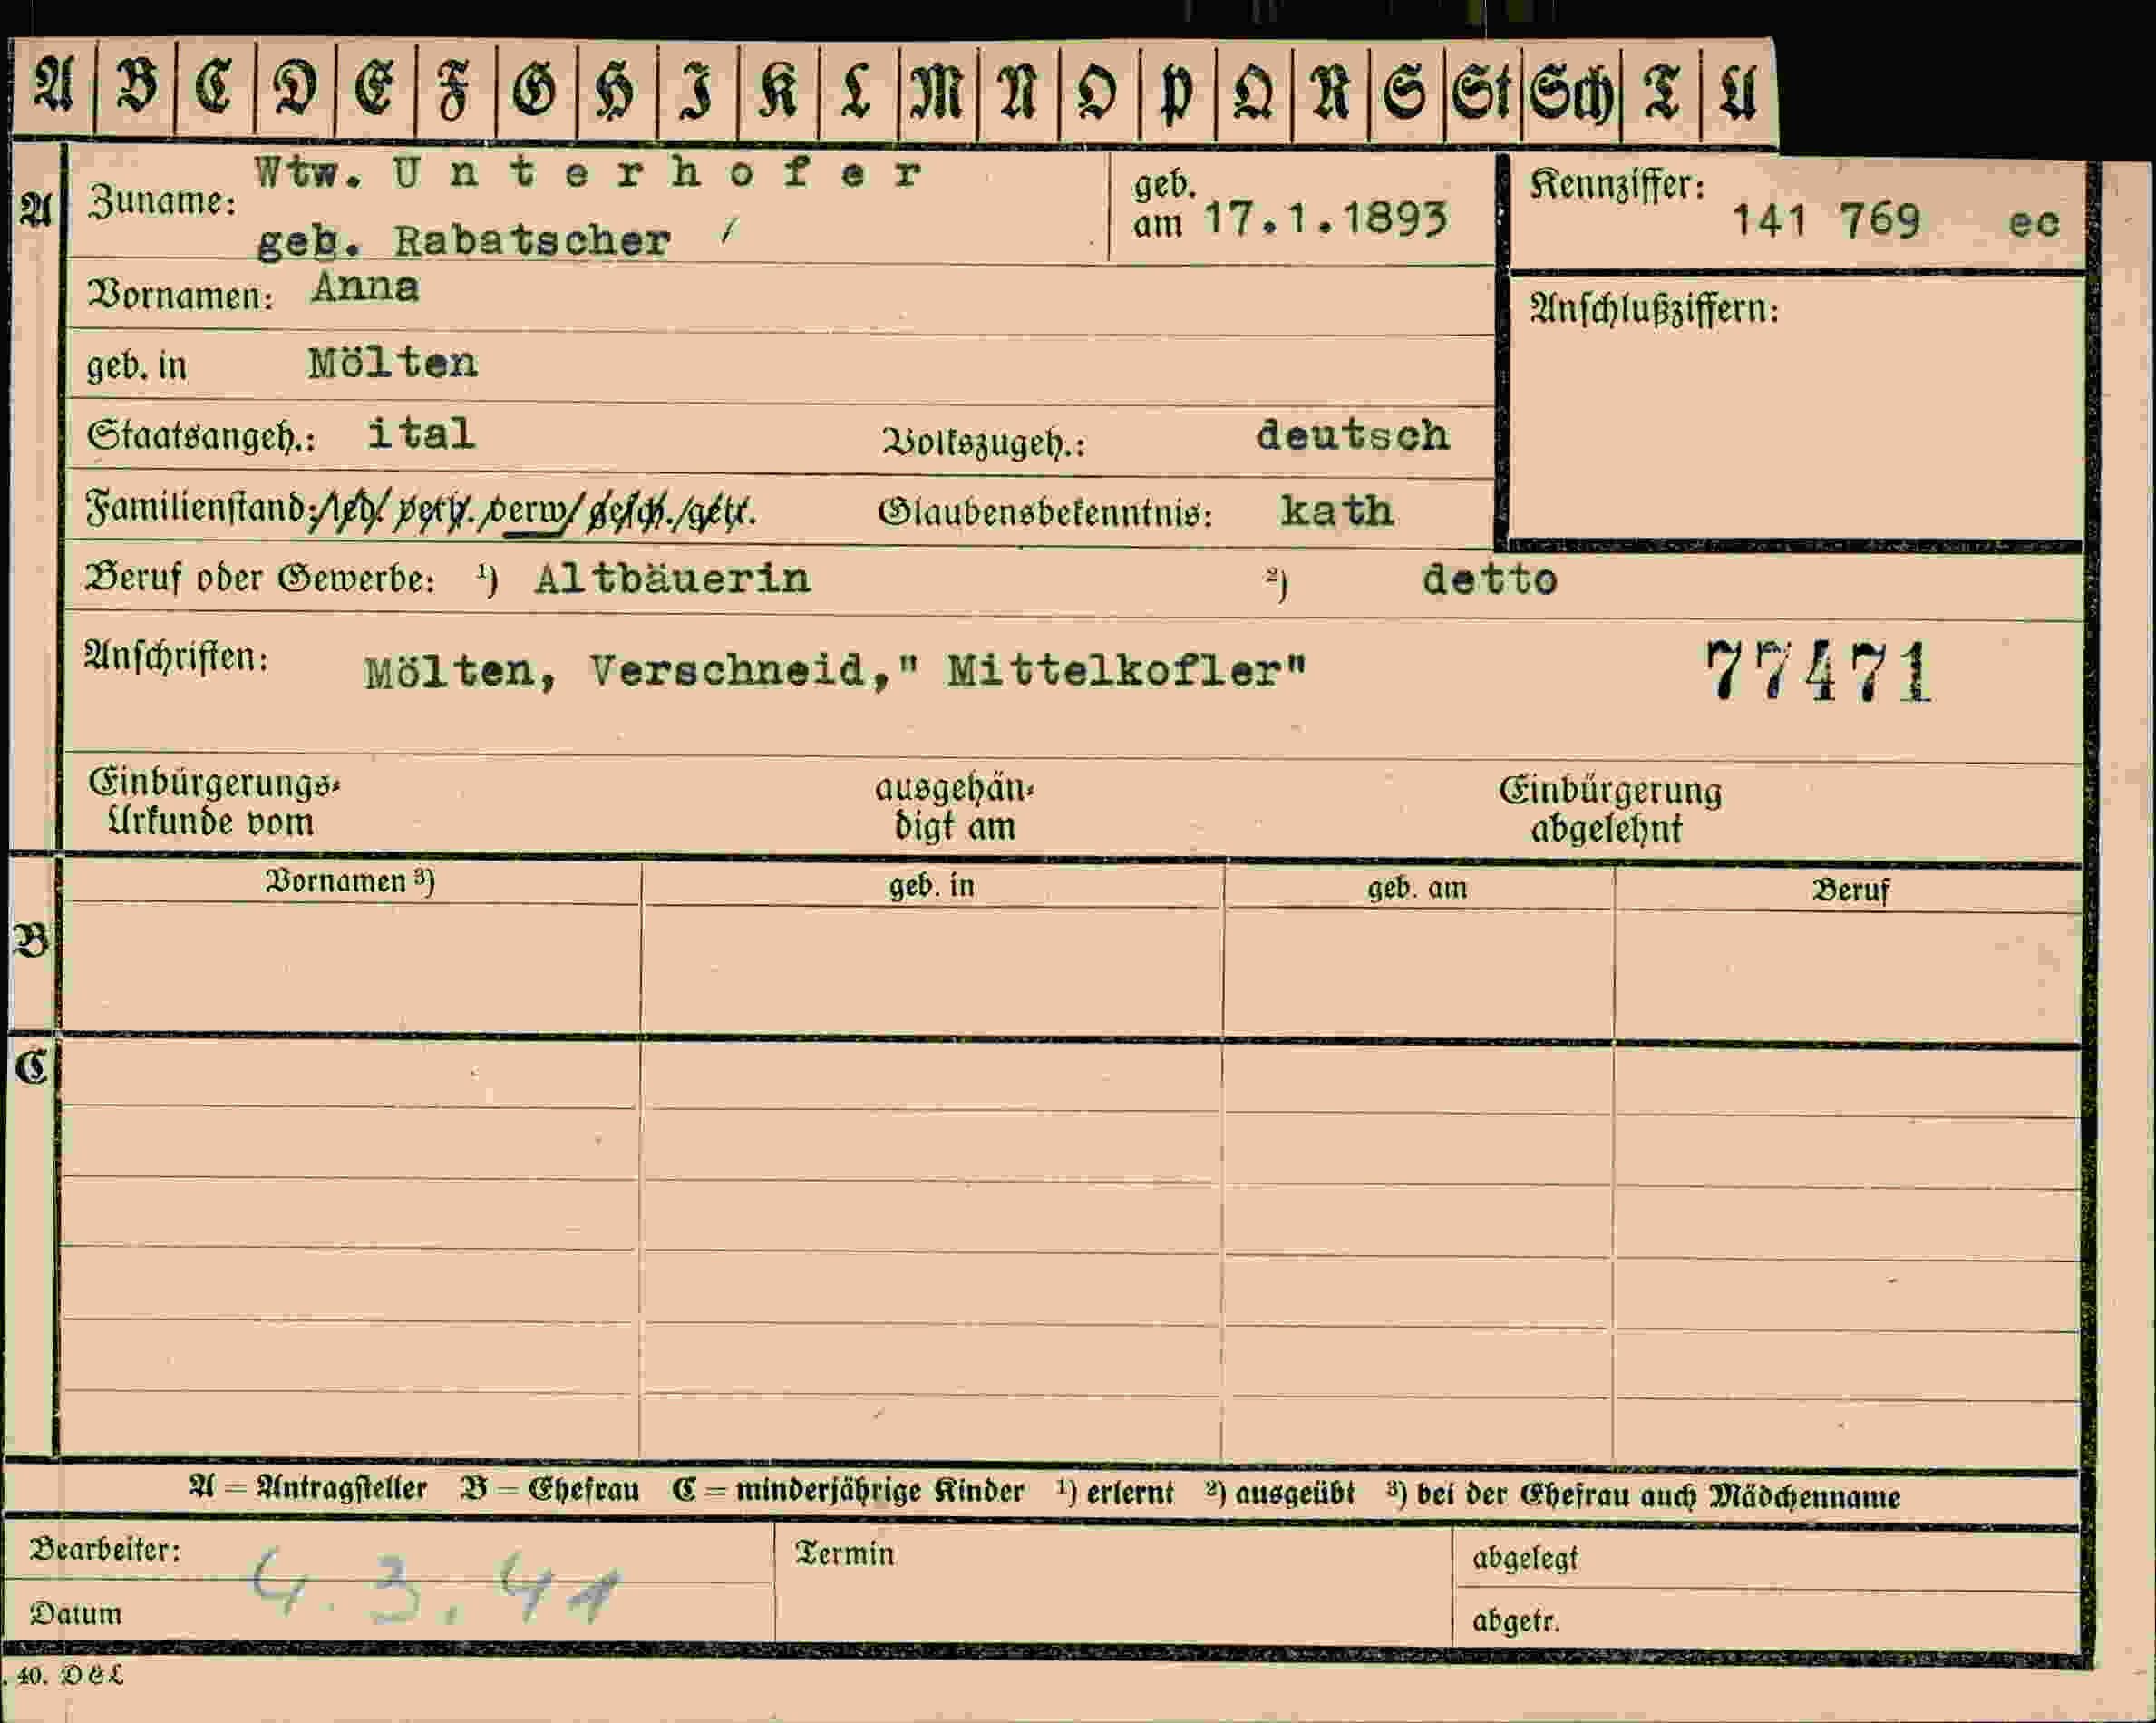 A B C D E F G H I K L M N O P Q R S St Sch T U
A
Zuname: Wtw. Unterhofer
geb. Rabatscher /
geb. am 17.1.1893
Kennziffer: 141 769 ec
Vornamen: Anna
Anschlußziffern:
geb. in Mölten
Staatsangeh.: ital Volkszugeh.: deutsch
Familienstand: led/ verh. verw/ gesch./getr. Glaubensbekenntnis: kath
Beruf oder Gewerbe: ¹) Altbäuerin ²) detto
Anschriften: Mölten, Verschneid," Mittelkofler" 77471
Einbürgerungs-
Urkunde vom
ausgehän-
digt am
Einbürgerung
abgelehnt
B
Vornamen ³) geb. in geb. am Beruf
C
A = Antragsteller B = Ehefrau C = minderjährige Kinder ¹) erlernt ²) ausgeübt ³) bei der Ehefrau auch Mädchenname
Bearbeiter: Termin abgelegt
4.3.41
Datum abgetr.
. 40. D & L